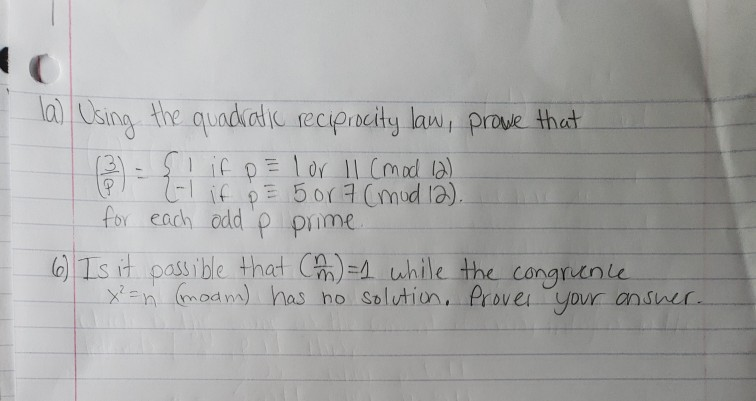 1a) Using the quadratic reciprocity law, prove that
(3/p) = { 1 if p ≡ 1 or 11 (mod 12)
{ -1 if p ≡ 5 or 7 (mod 12).
for each odd p prime.
b) Is it possible that (n/m)=1 while the congruence
x²=n (modm) has no solution. Prover your answer.